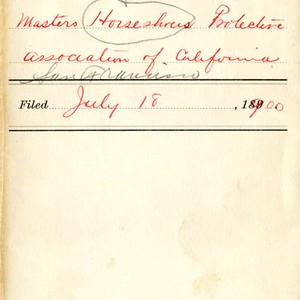 Masters Horseshoers Protective
Association of California
San Francisco
Filed July 18, 1900